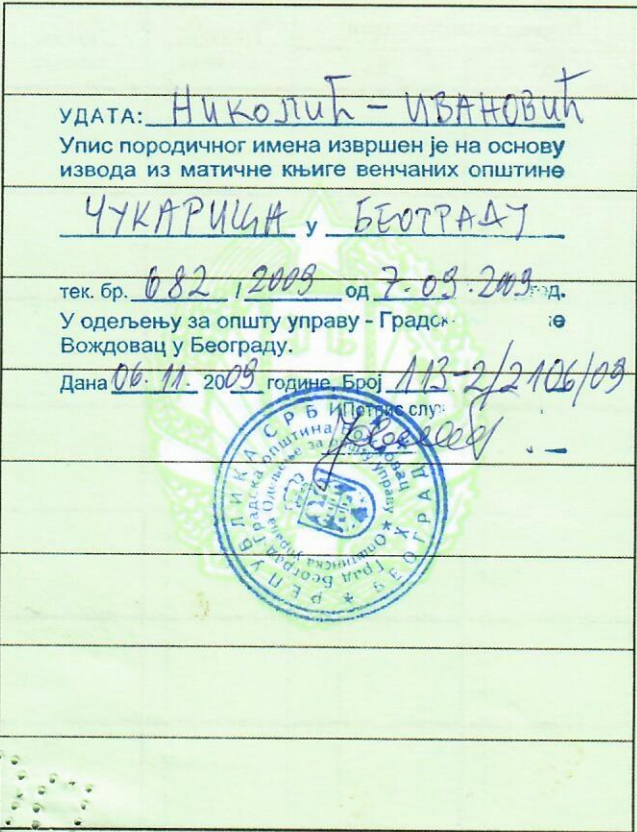 УДАТА: Николић - ИВАНОВИЋ
Упис породичног имена извршен је на основу
извода из матичне књиге венчаних општине
ЧУКАРИЦА у БЕОГРАДУ
тек. бр. 682 / 2009 од 7.09.2009 год.
У одељењу за општу управу - Градск
Вождовац у Београду.
Дана 06.11. 2009 године, Број 113-2/2106/09
Потпис служ
РЕПУБЛИКА СРБИЈА
Град Београд Градска општина Вождовац
Општинска управа Одељење за општу управу
БЕОГРАД
X